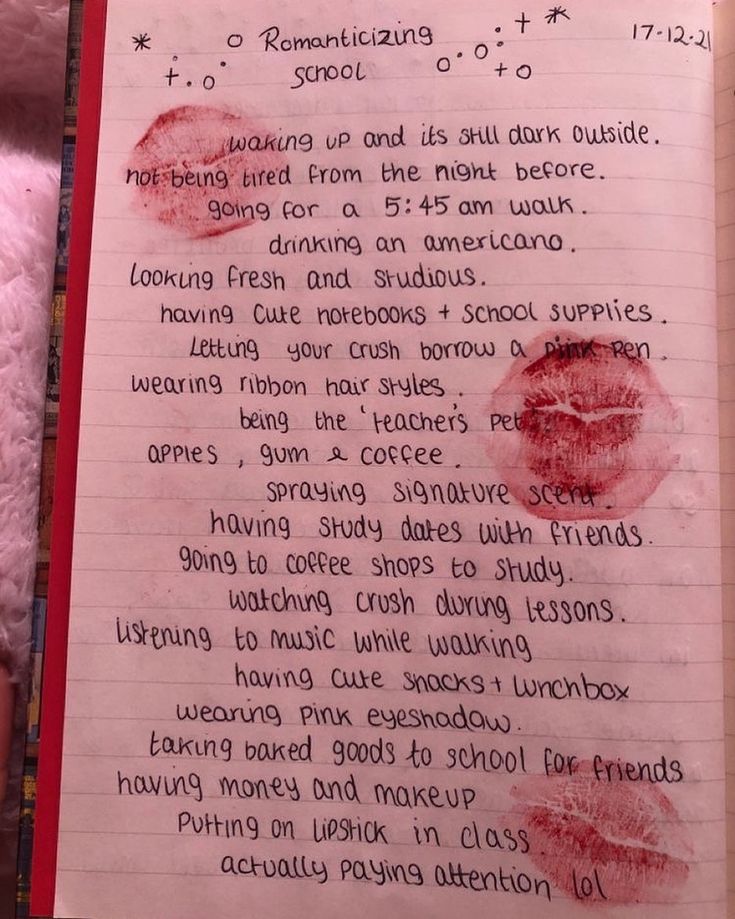 Romanticizing
17-12-21
SCHOOL
waking up and its still dark outside.
not being tired from the night before.
going for a 5:45 am walk.
drinking an americano.
looking fresh and studious.
having cute notebooks + school supplies.
letting your crush borrow a pink pen.
wearing ribbon hair styles.
being the 'teacher's pet'
apples, gum & coffee.
spraying signature scent.
having study dates with friends.
going to coffee shops to study.
watching crush during lessons.
listening to music while walking
having cute snacks + lunchbox
wearing pink eyeshadow.
taking baked goods to school for friends
having money and makeup
putting on lipstick in class
actually paying attention lol